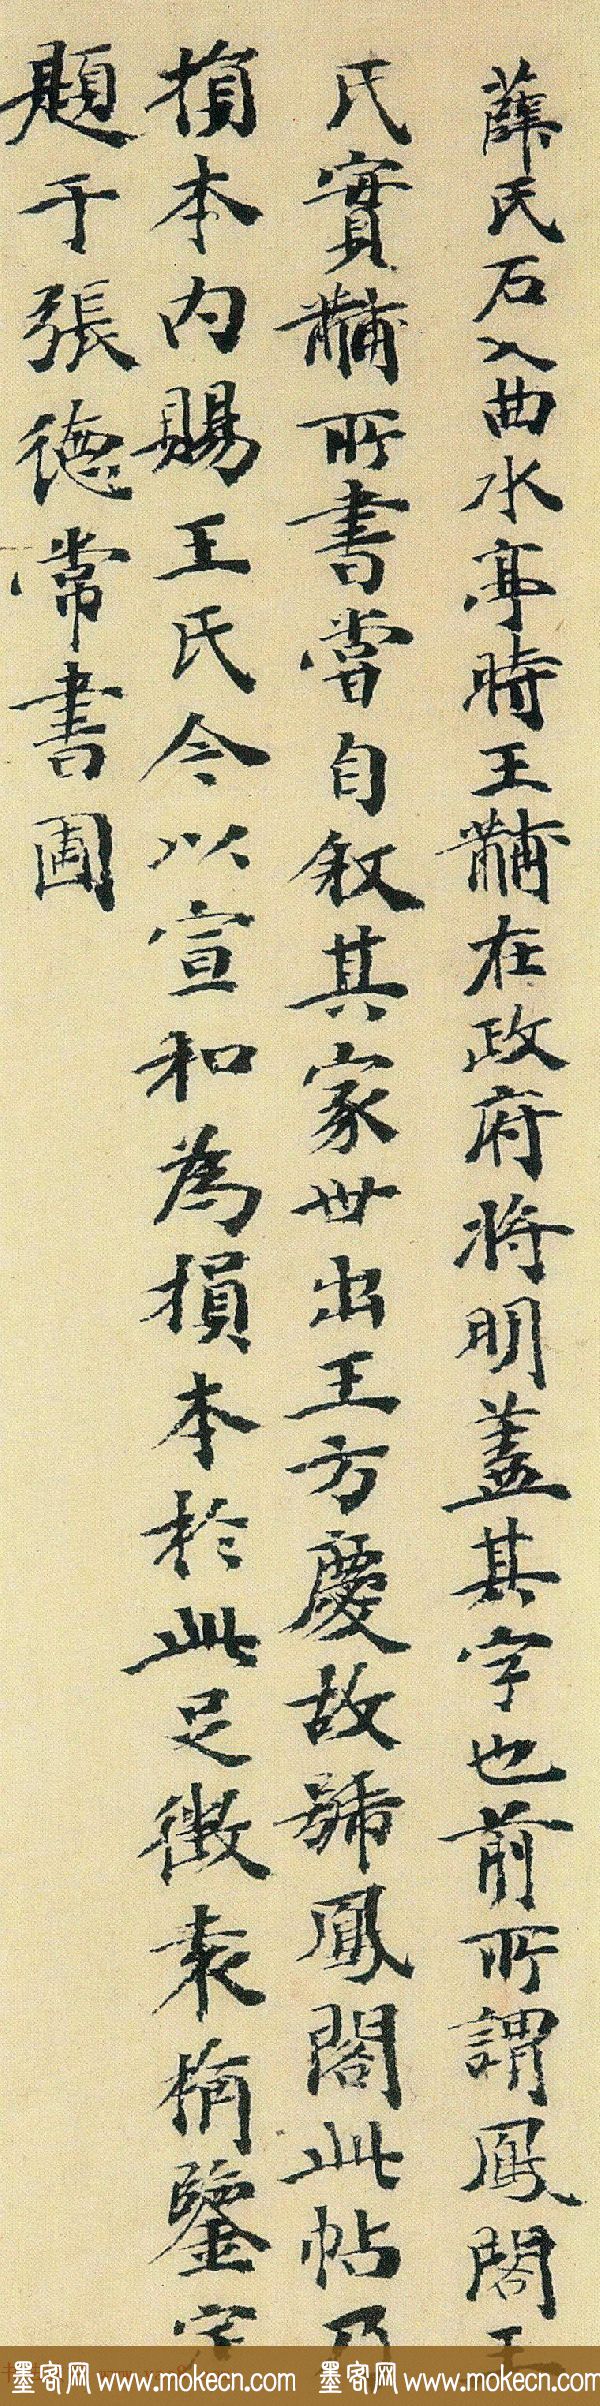 薛氏石入曲水亭時王黼在政府將明蓋其字也前所謂鳳閣王
氏實黼所書嘗自叙其家世出王方慶故號鳳閣此帖乃
損本內賜王氏今以宣和為損本於此足徵袁桷鑒定
題于張德常書圃
墨客网 www.mokecn.com 墨客网 www.mokecn.com